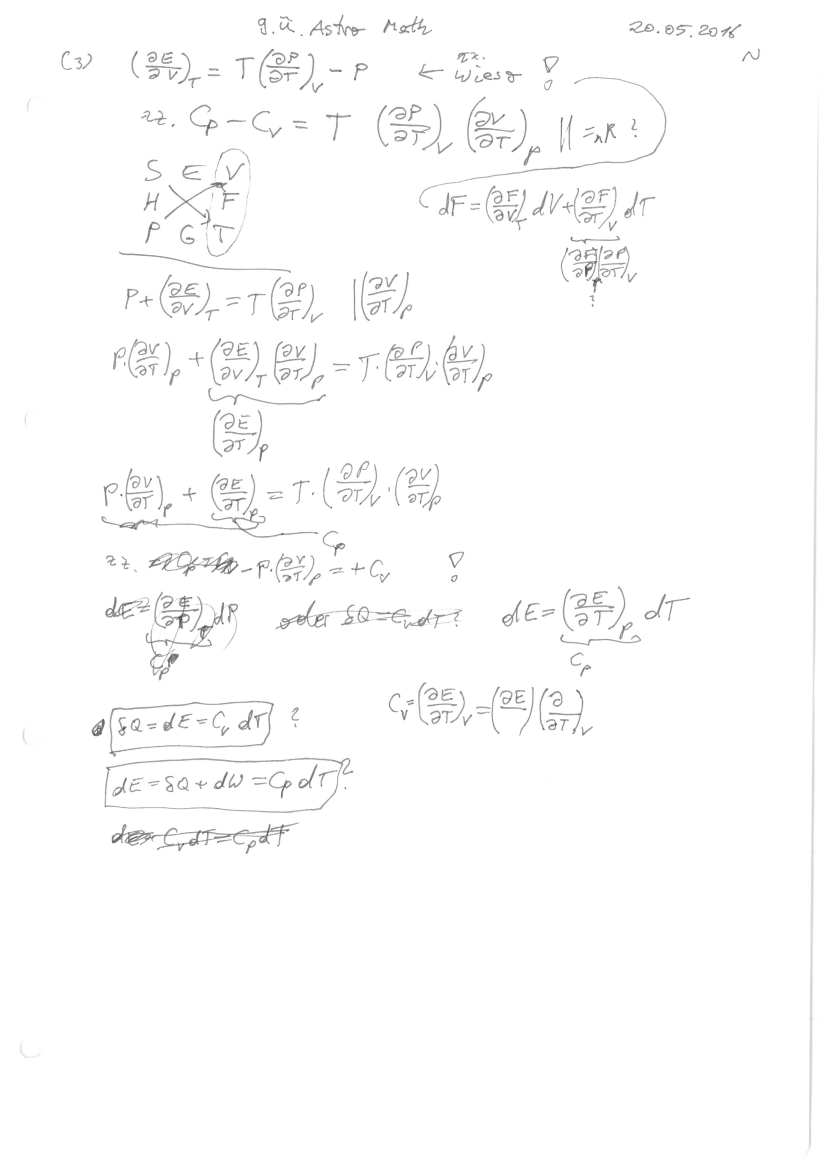 9.Ü. Astro Math 20.05.2016
N
(3) (∂E/∂V)_T = T(∂P/∂T)_V − P ← zz. Wieso !
zz. C_p − C_V = T (∂P/∂T)_V (∂V/∂T)_P || = nR ?
S E V
H F
P G T
dF = (∂F/∂V)_T dV + (∂F/∂T)_V dT
(∂F/∂P)(∂P/∂T)_V
?
P + (∂E/∂V)_T = T(∂P/∂T)_V |(∂V/∂T)_P
P·(∂V/∂T)_P + (∂E/∂V)_T (∂V/∂T)_P = T·(∂P/∂T)_V·(∂V/∂T)_P
(∂E/∂T)_P
P·(∂V/∂T)_P + (∂E/∂T)_P = T·(∂P/∂T)_V·(∂V/∂T)_P
C_p
zz. −P·(∂V/∂T)_P = + C_V !
dE = (∂E/∂P) dP oder δQ = C_V dT? dE = (∂E/∂T)_P dT
C_p C_p
δQ = dE = C_V dT ? C_V = (∂E/∂T)_V = (∂E/ )(∂/∂T)_V
dE = δQ + dW = C_p dT ?
C_V dT = C_p dT